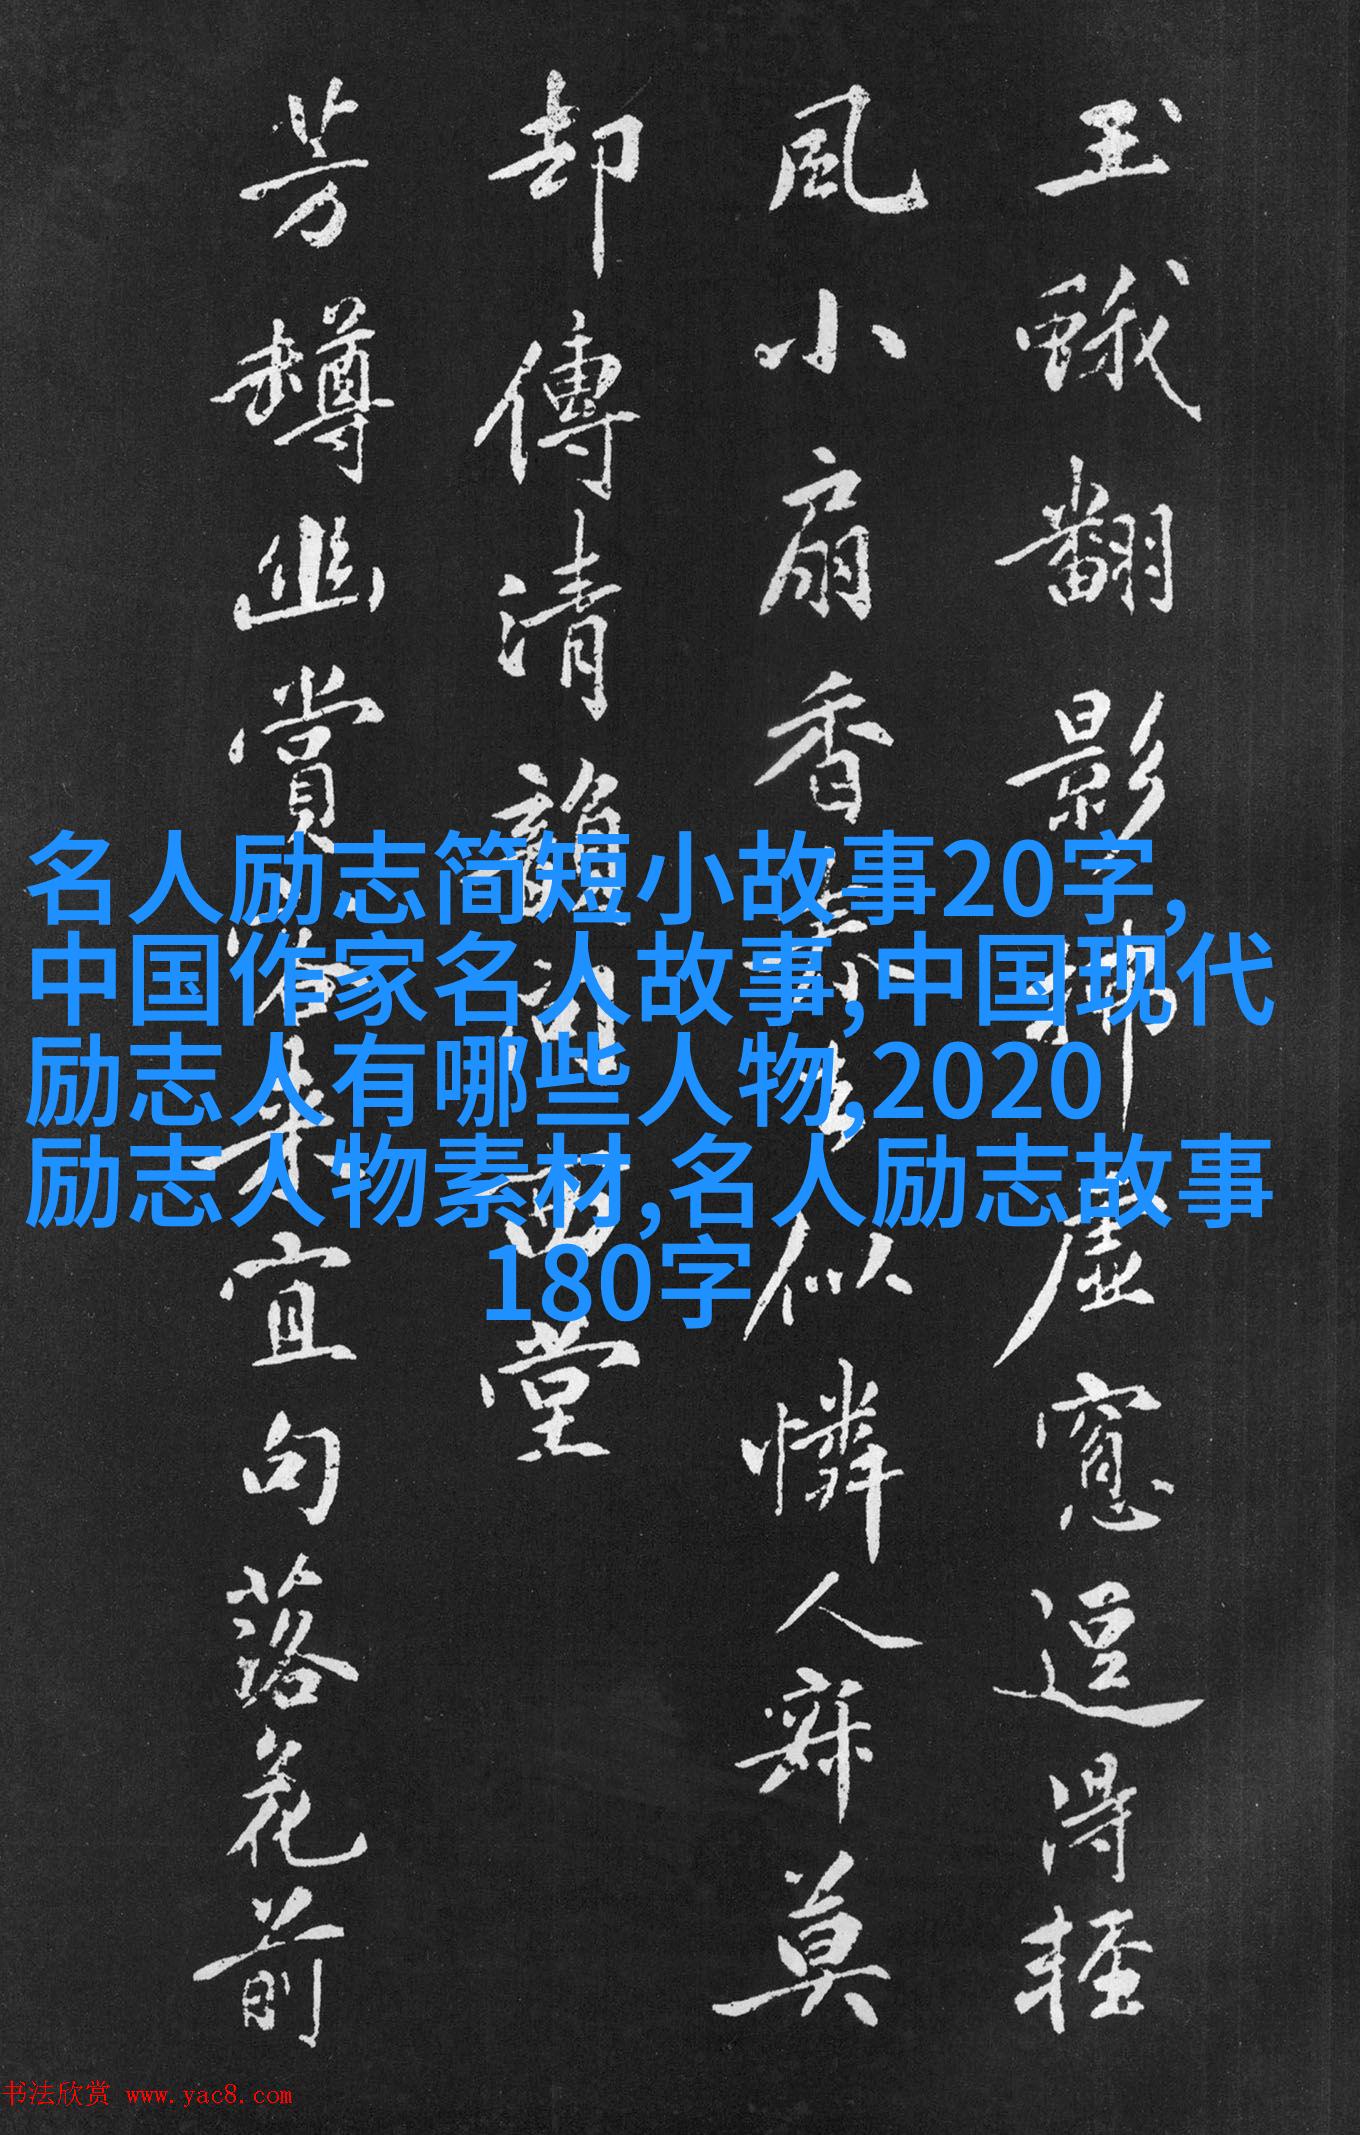 玉蛾翻影拂虚窻逗得輕
風小扇香 似憐人寐莫
却傳清韻 西堂
芳罇幽賞 來宜句落花前
名人励志简短小故事20字,
中国作家名人故事,中国现代
励志人有哪些人物,2020
励志人物素材,名人励志故事
180字
书法欣赏 www.yac8.com